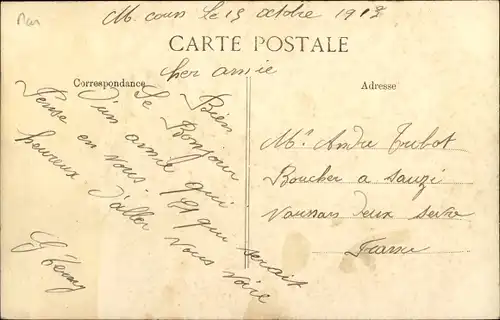 M. cours le 15 octobre 1913
CARTE POSTALE
Correspondance
Cher amie
Adresse
Bien
Le Bonjour
D'un amie qui
Pense en vous et qui serait
heureux d'aller vous voir
Mr André Tubot
Boucher a Sauzé
Vaussais Deux Sevre
France